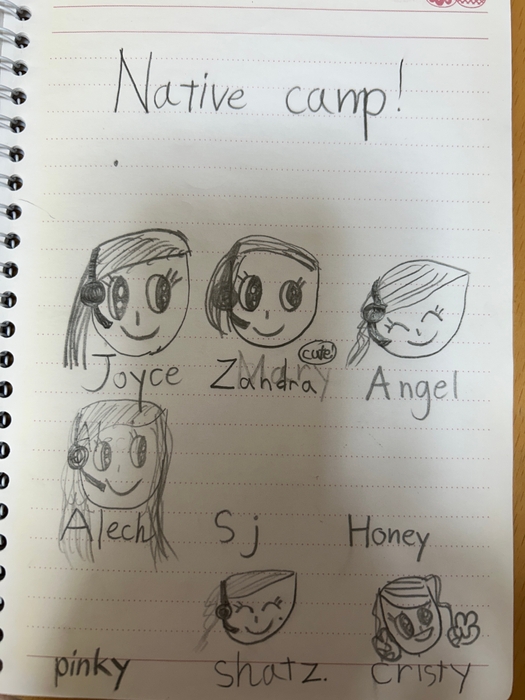 Native camp!
Joyce Zandra cute! Angel
Alech Sj Honey
pinky shatz. cristy